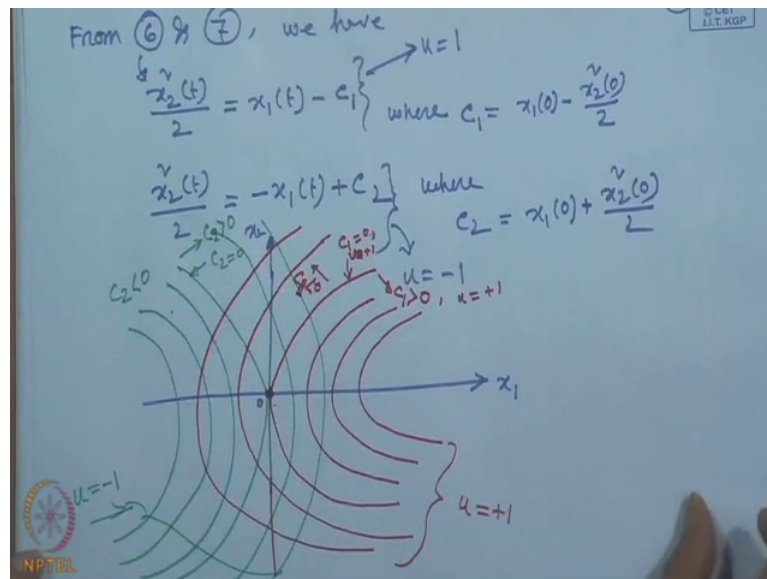 © CET
I.I.T. KGP
From ⑥ & ⑦, we have
x₂²(t)/2 = x₁(t) - C₁ } → u = 1 where C₁ = x₁(0) - x₂²(0)/2
x₂²(t)/2 = -x₁(t) + C₂ } where C₂ = x₁(0) + x₂²(0)/2
u = -1
x₂
C₂>0
C₂=0
C₂<0
C₁=0, u=+1
C₁>0, u=+1
0
x₁
u = -1
u = +1
NPTEL